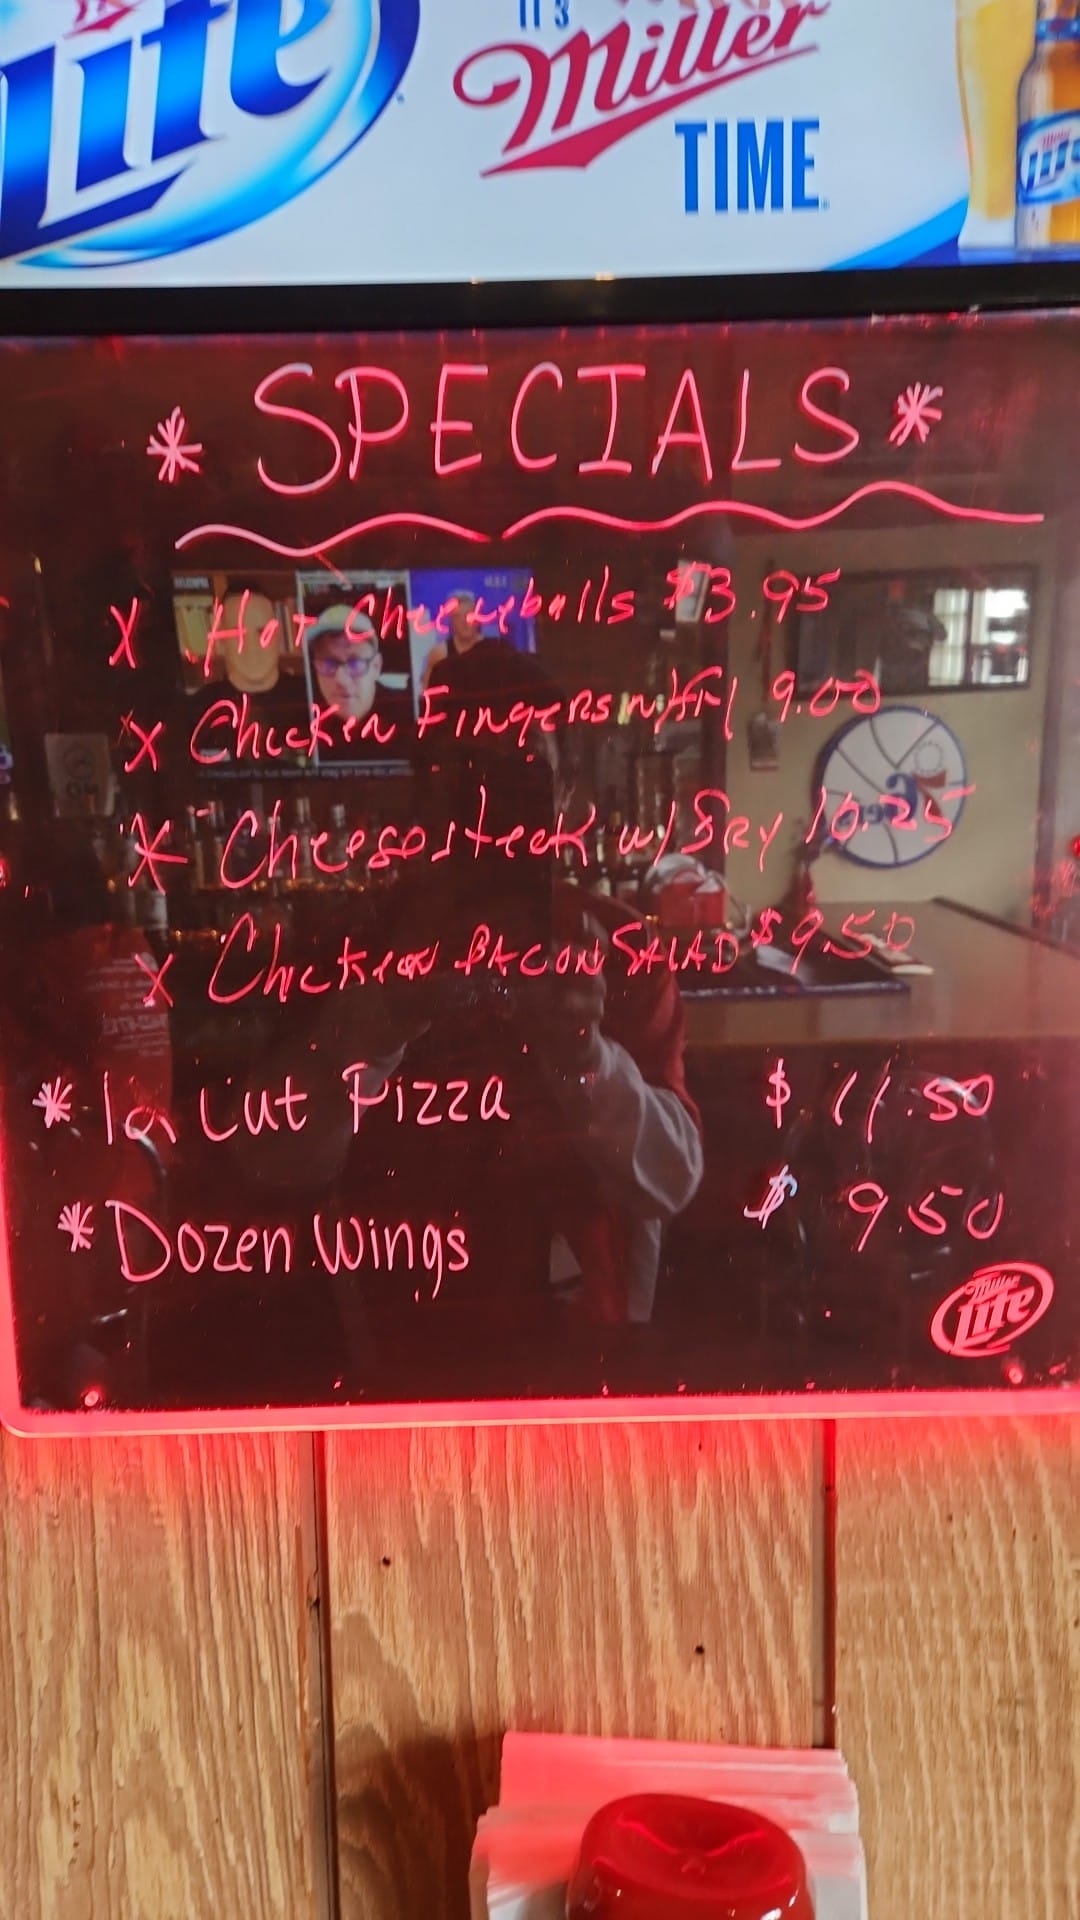 Lite
IT'S
Miller
TIME
Lite
* SPECIALS *
X Hot Cheeseballs $3.95
X Chicken Fingers w/FF 9.00
X Cheesesteak w/ Fry 10.25
X Chicken BACON SALAD $9.50
* 12 Cut Pizza $ 11.50
* Dozen Wings $ 9.50
Miller
Lite